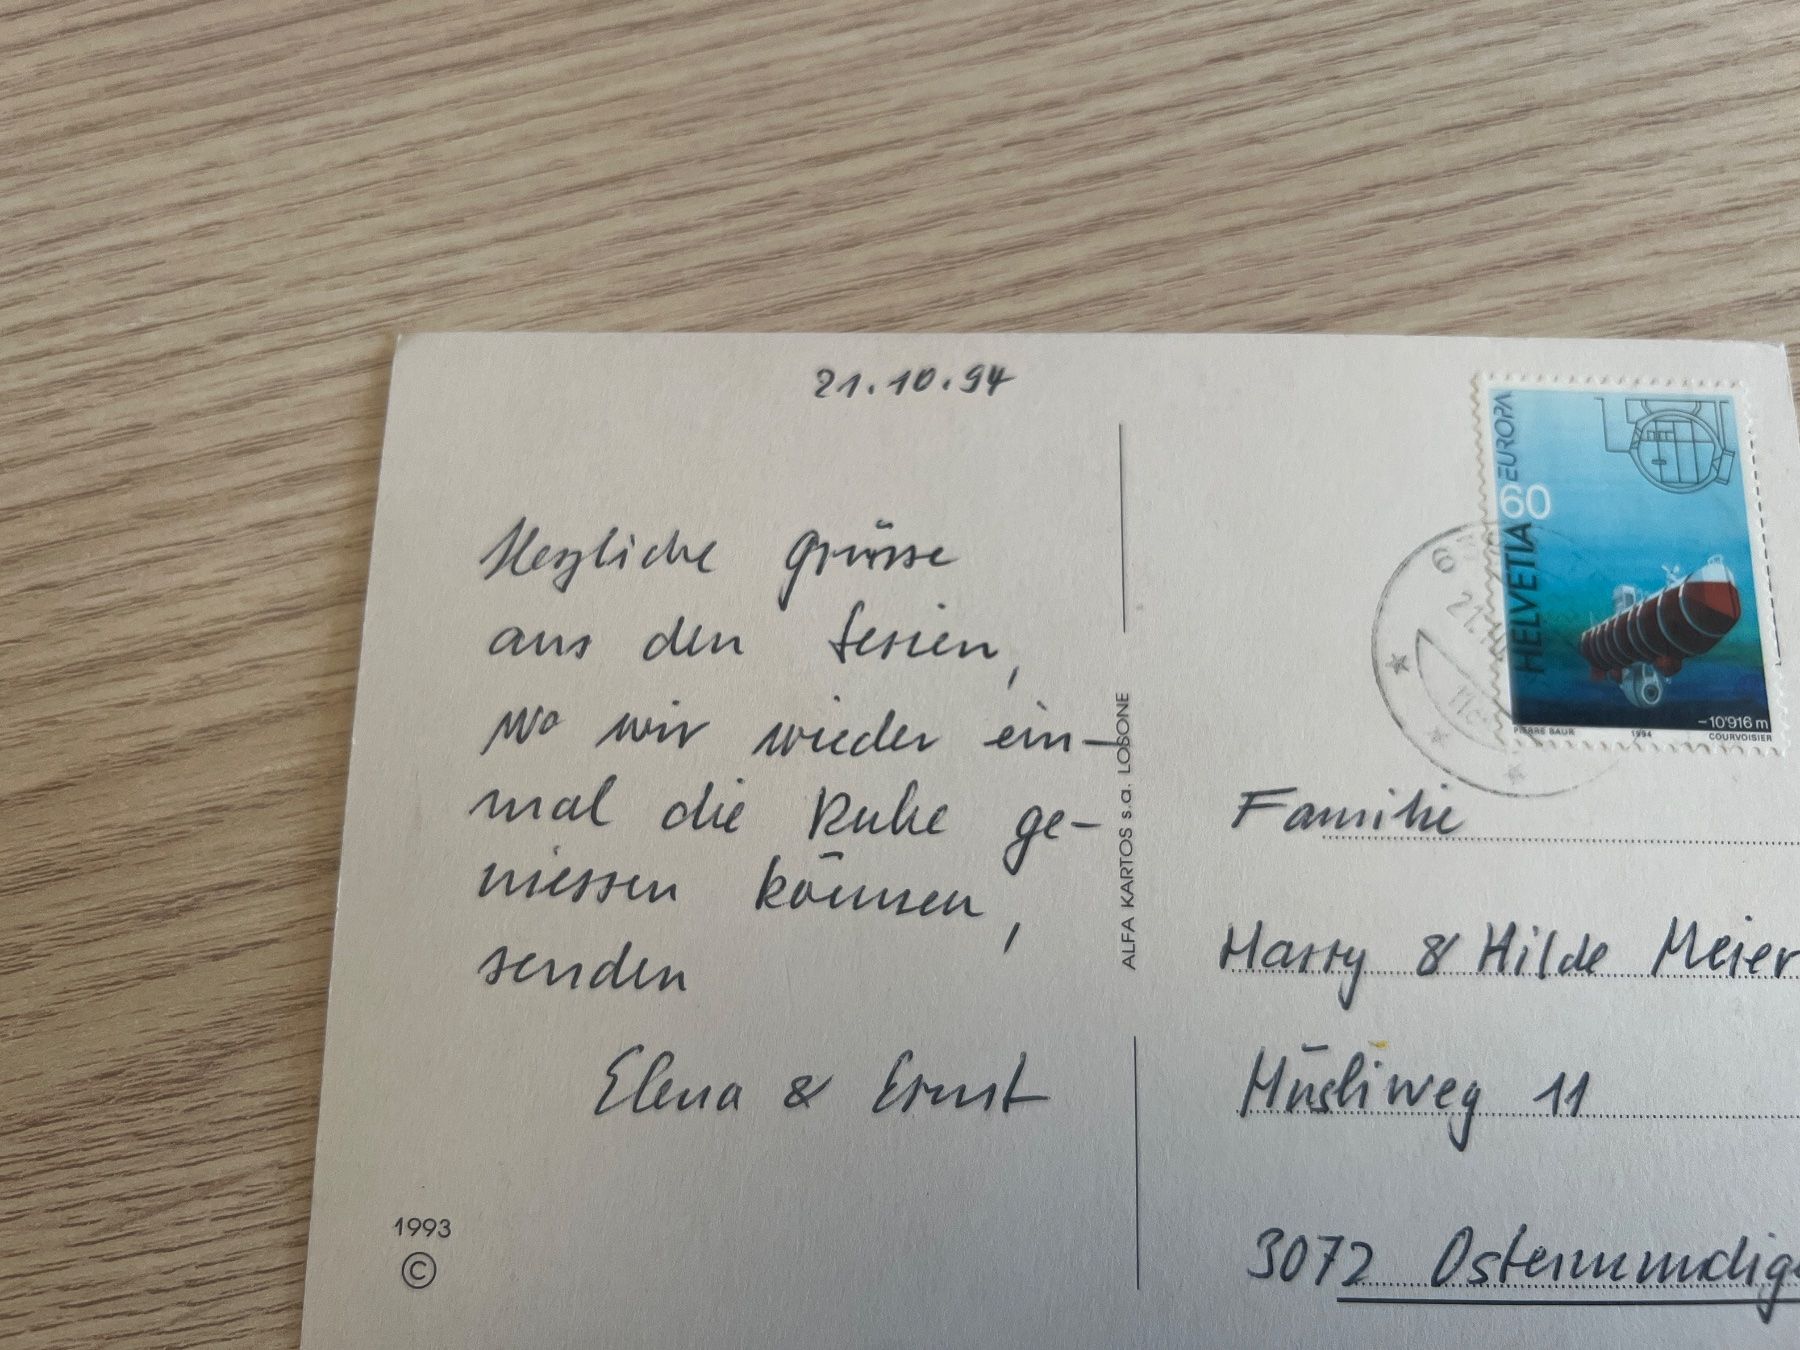 21.10.94
Herzliche Grüsse
aus den Ferien,
wo wir wieder ein-
mal die Ruhe ge-
niessen können,
senden
Elena & Ernst
1993
©
ALFA KARTOS s.a. LOSONE
EUROPA
60
HELVETIA
–10'916 m
PIERRE BAUR 1994 COURVOISIER
Familie
Harry & Hilde Meier
Hüsliweg 11
3072 Ostermundig